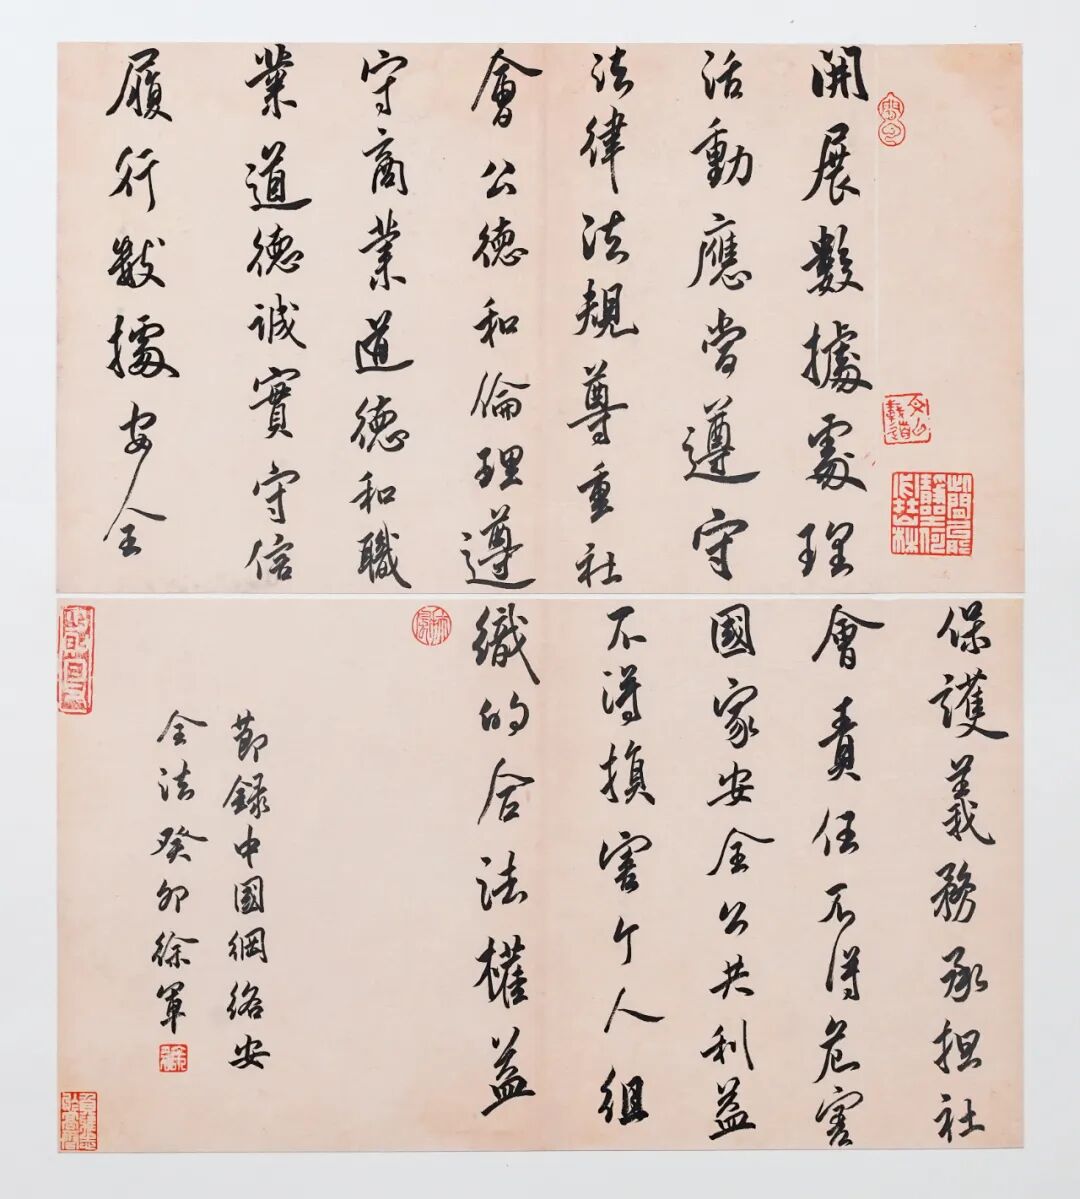 開展數據處理
活動應當遵守
法律法規尊重社
會公德和倫理遵
守商業道德和職
業道德誠實守信
履行數據安全
保護義務承担社
會責任不得危害
國家安全公共利益
不得損害个人組
織的合法權益
節録中國網絡安
全法癸卯徐軍